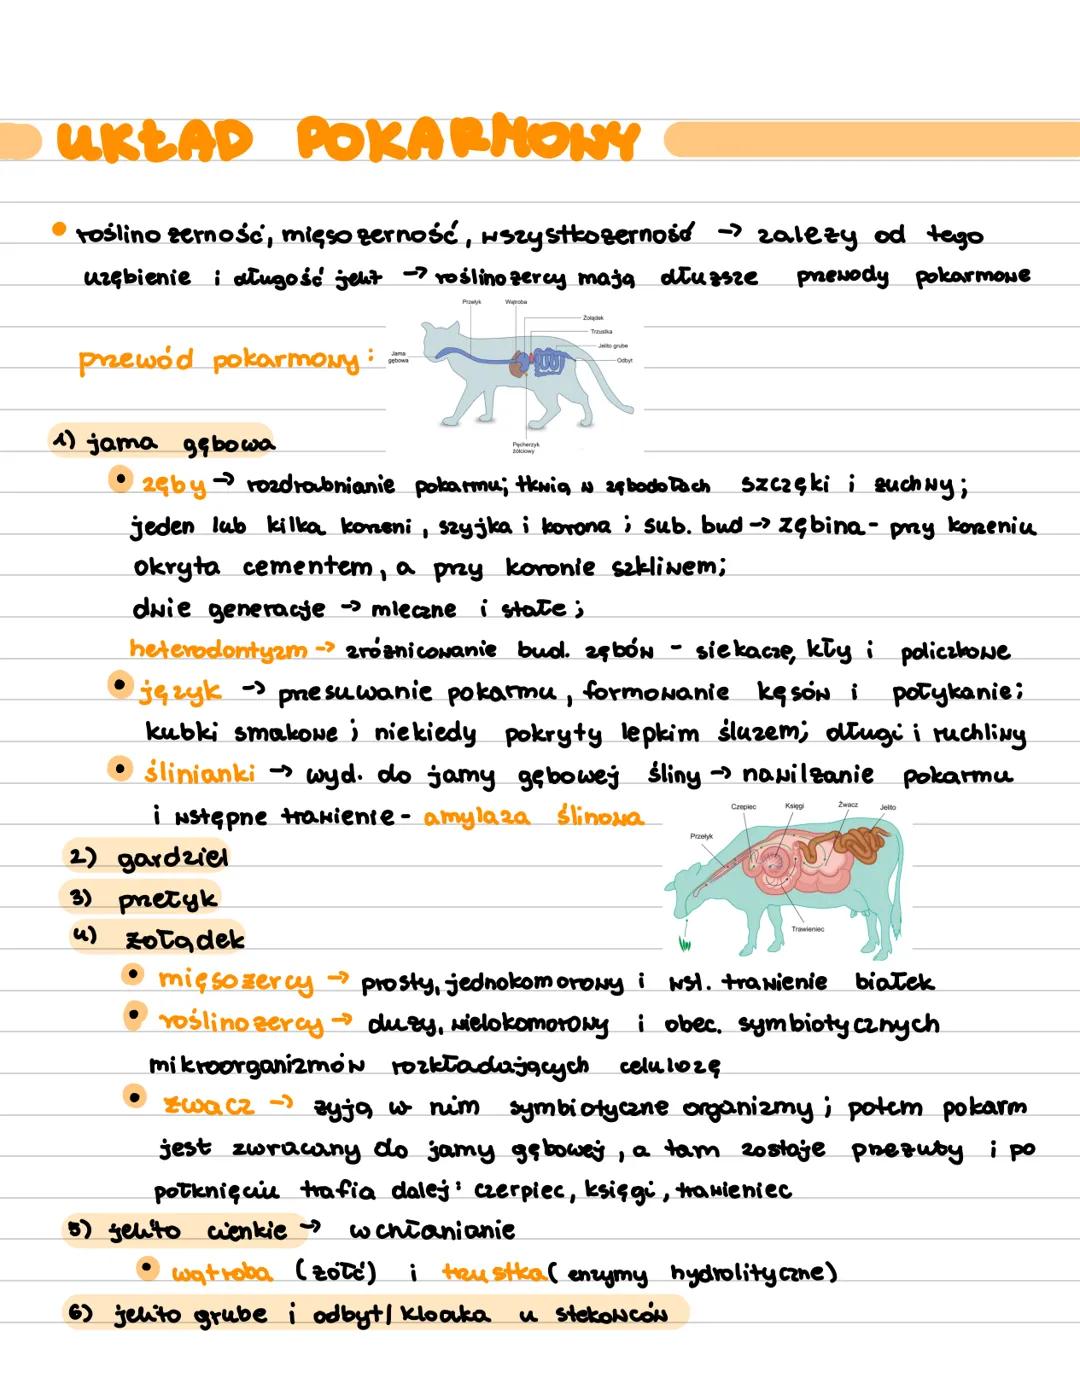 UKŁAD POKARMOWY
roślinożerność, mięsożerność, wszystkożerność → zależy od tego
uzębienie i długość jelit → roślinożercy mają dłuższe przewody pokarmowe
Przełyk Wątroba
Żołądek
Trzustka
Jelito grube
Odbyt
Jama gębowa
Pęcherzyk żółciowy
przewód pokarmowy:
1) jama gębowa
zęby → rozdrabnianie pokarmu; tkwią w zębodołach szczęki i żuchwy;
jeden lub kilka korzeni, szyjka i korona; sub. bud → zębina - przy korzeniu
okryta cementem, a przy koronie szkliwem;
dwie generacje → mleczne i stałe;
heterodontyzm → zróżnicowanie bud. zębów - siekacze, kły i policzkowe
język → przesuwanie pokarmu, formowanie kęsów i połykanie;
kubki smakowe; niekiedy pokryty lepkim śluzem; długi i ruchliwy
ślinianki → wyd. do jamy gębowej śliny → nawilżanie pokarmu
i wstępne trawienie - amylaza ślinowa
Czepiec Księgi Żwacz Jelito
Przełyk
Trawieniec
2) gardziel
3) przełyk
4) żołądek
mięsożercy → prosty, jednokomorowy i wst. trawienie białek
roślinożercy → duży, wielokomorowy i obec. symbiotycznych
mikroorganizmów rozkładających celulozę
żwacz → żyją w nim symbiotyczne organizmy; potem pokarm
jest zwracany do jamy gębowej, a tam zostaje przeżuty i po
połknięciu trafia dalej: czerpiec, księgi, trawieniec
5) jelito cienkie → wchłanianie
wątroba (żółć) i trzustka (enzymy hydrolityczne)
6) jelito grube i odbyt/ kloaka u stekowców